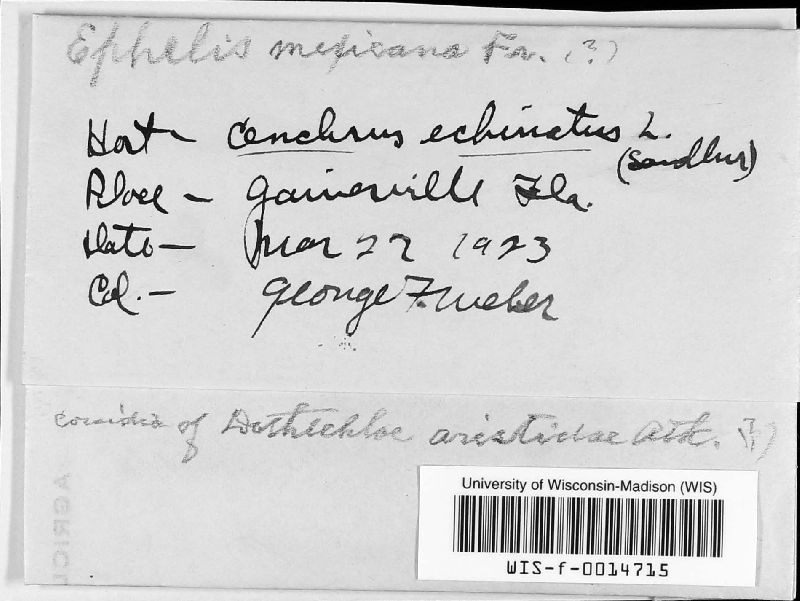 Ephelis mexicana Fr. (?)
Host - Cenchrus echinatus L.
(Sandbur)
Place - Gainesville Fla.
Date - Mar 22 1923
Col. - George F. Weber
conidia of Dothichloe aristidae Atk. (?)
AGRICU
University of Wisconsin-Madison (WIS)
WIS-f-0014715